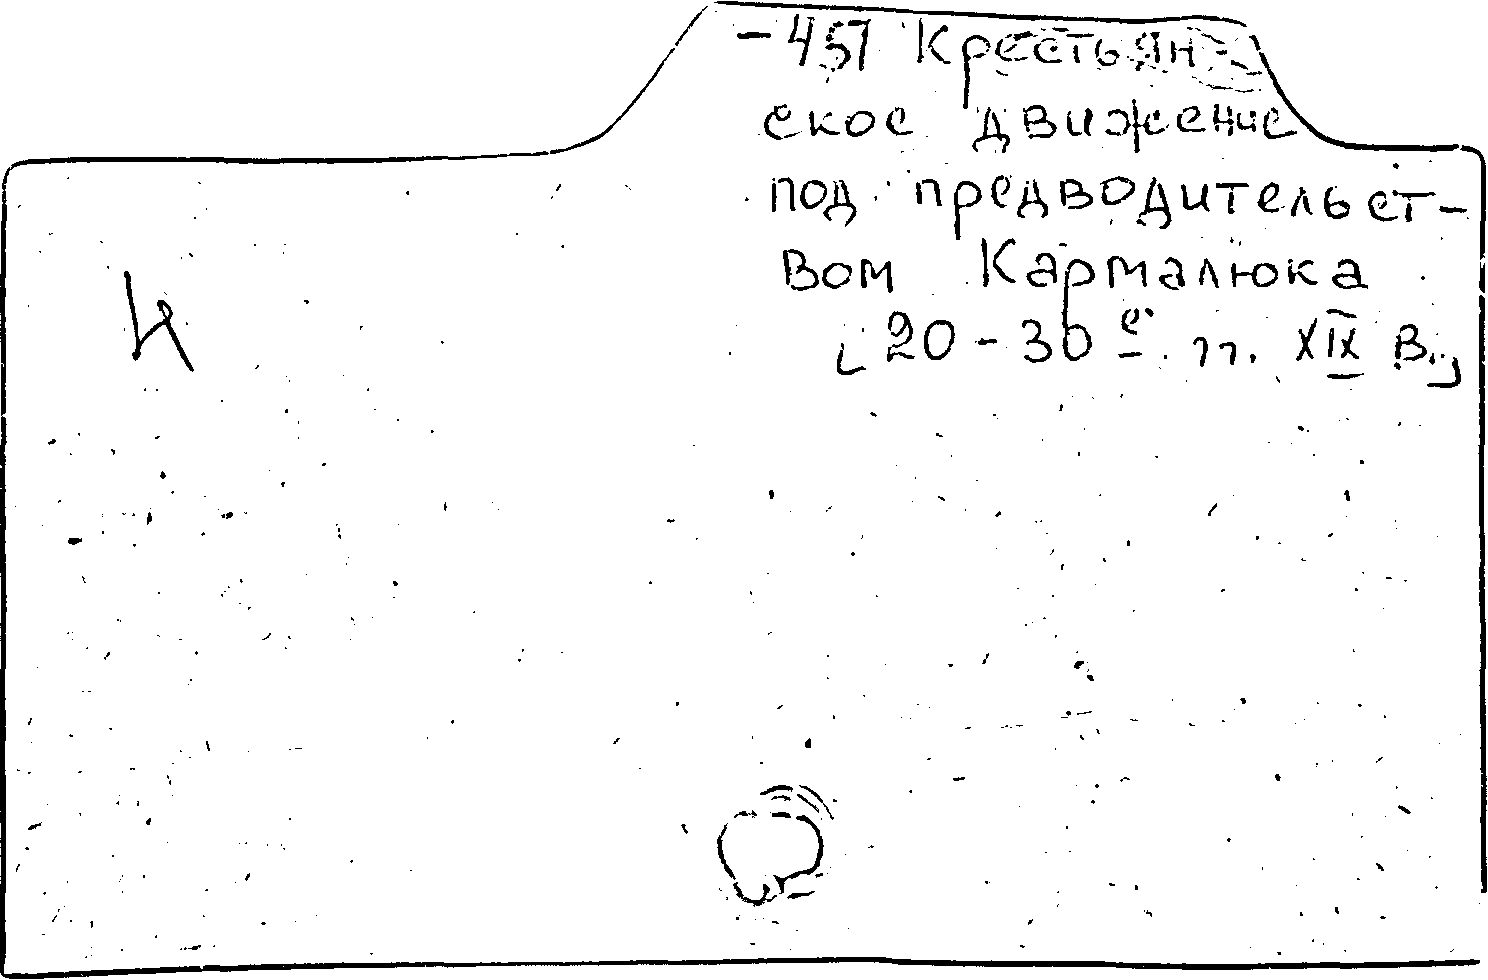 -451 Крестьян-
ское движение
под предводительст-
вом Кармалюка
[20-30е гг. XIX в.]